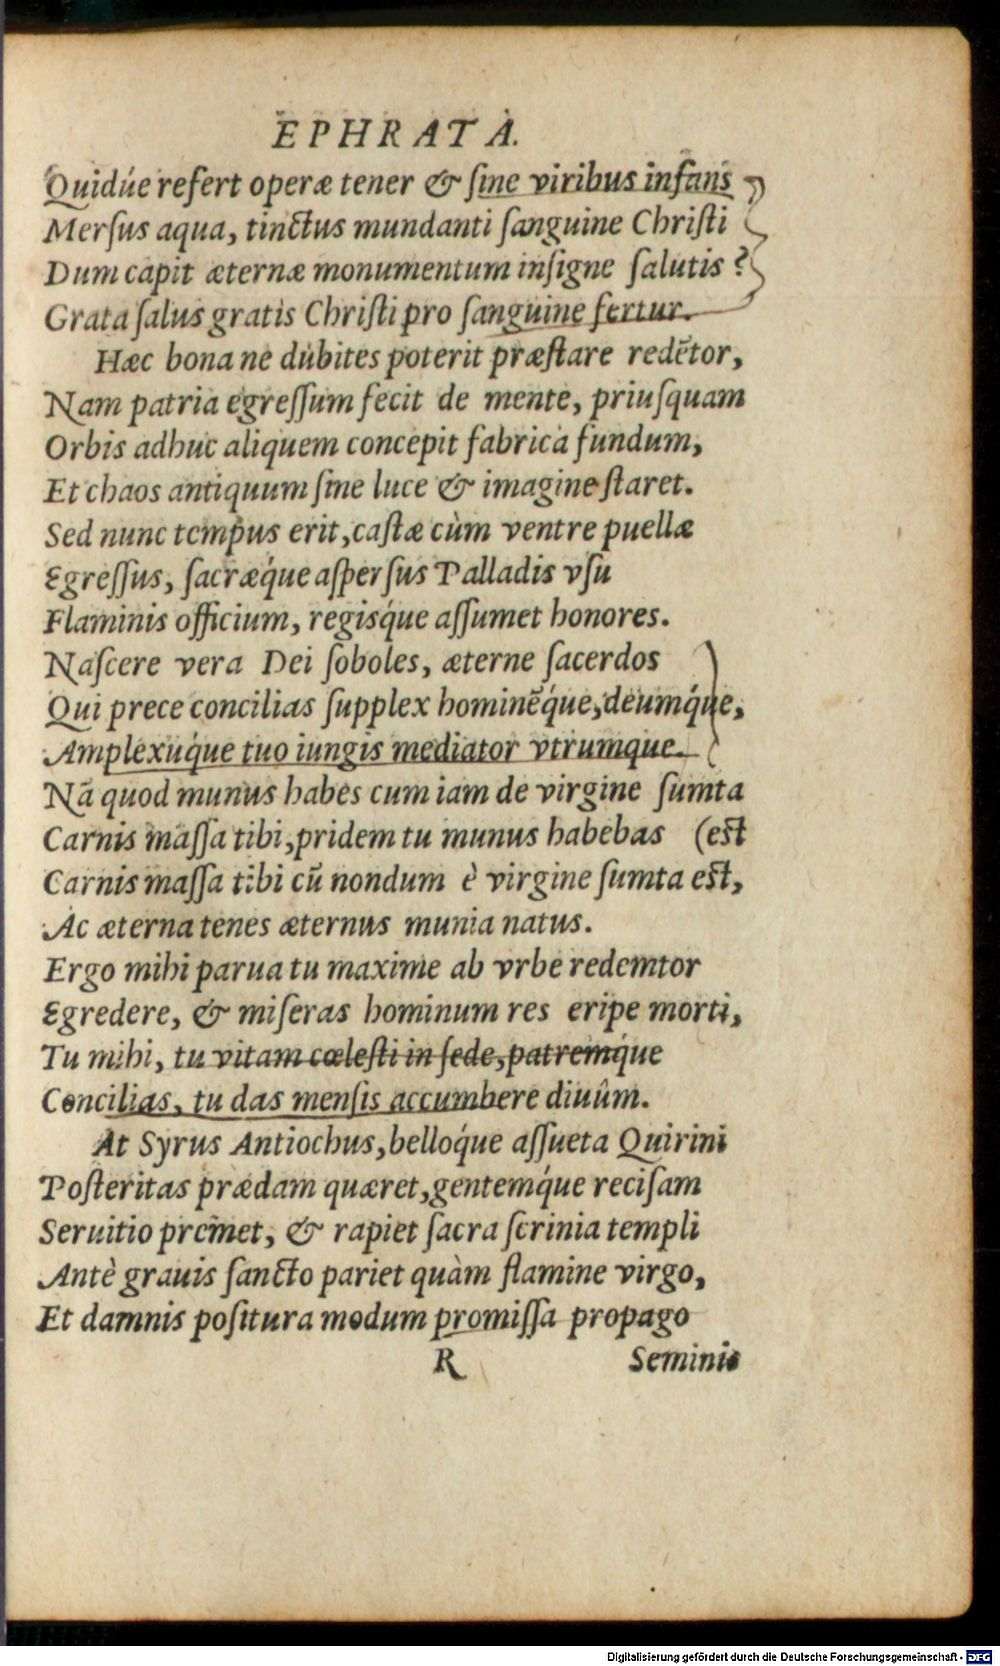 EPHRATA.
Quidúe refert operæ tener & ſine viribus infans
Merſus aqua, tinctus mundanti ſanguine Chriſti
Dum capit æternæ monumentum inſigne ſalutis?
Grata ſalus gratis Chriſti pro ſanguine fertur.
Hæc bona ne dubites poterit præſtare redētor,
Nam patria egreſſum fecit de mente, priuſquam
Orbis adhuc aliquem concepit fabrica fundum,
Et chaos antiquum ſine luce & imagine ſtaret.
Sed nunc tempus erit, caſtæ cùm ventre puellæ
Egreſſus, ſacræq́ue aſperſus Palladis vſu
Flaminis officium, regisq́ue aſſumet honores.
Naſcere vera Dei ſoboles, æterne ſacerdos
Qui prece concilias ſupplex hominēq́ue, deumq́ue,
Amplexuq́ue tuo iungis mediator vtrumque.
Nā quod munus habes cum iam de virgine ſumta
Carnis maſſa tibi, pridem tu munus habebas (eſt
Carnis maſſa tibi cū nondum è virgine ſumta eſt,
Ac æterna tenes æternus munia natus.
Ergo mihi parua tu maxime ab vrbe redemtor
Egredere, & miſeras hominum res eripe morti,
Tu mihi, tu vitam cœleſti in ſede, patremq́ue
Concilias, tu das menſis accumbere diuûm.
At Syrus Antiochus, belloq́ue aſſueta Quirini
Poſteritas prædam quæret, gentemq́ue reciſam
Seruitio premet, & rapiet ſacra ſcrinia templi
Antè grauis ſancto pariet quàm flamine virgo,
Et damnis poſitura modum promiſſa propago
R Seminis
Digitalisierung gefördert durch die Deutsche Forschungsgemeinschaft - DFG